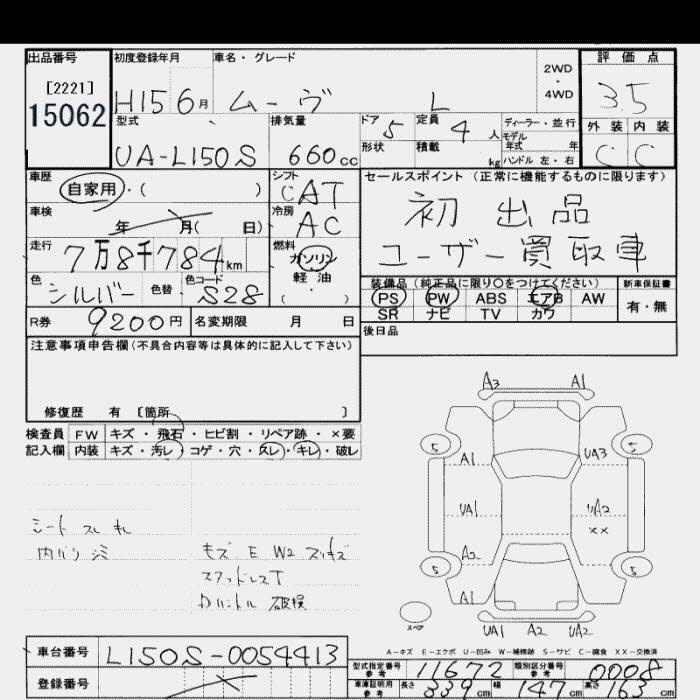 出品番号 初度登録年月 車名・グレード 2WD・4WD 評価点
[2221]
15062 H15 6月 ムーヴ L 3.5
型式 排気量 ドア 5 定員 4人 ディーラー・並行 外装 内装
UA-L150S 660cc 形状 積載 kg モデル年式 年 ハンドル 左・右 C C
車歴 自家用・( ) シフト CAT セールスポイント(正常に機能するものに限ります)
車検 年 月( 日) 冷房 AC 初出品
走行 7万8千784km 燃料 ガソリン 軽油 ( ・ ) ユーザー買取車
色 シルバー 色替 色コード S28 装備品(純正品に限り○をつけてください) 新車保証書
PS PW ABS エアB AW 有・無
R券 9200円 名変期限 月 日 SR ナビ TV カワ
後日品
注意事項申告欄(不具合内容等は具体的に記入して下さい)
修復歴 有 [箇所 ]
検査員 FW キズ・飛石・ヒビ割・リペア跡・×要
記入欄 内装 キズ・汚レ・コゲ・穴・スレ・キレ・破レ
A3 A1
5 5
A1 UA3
UA1 UA2
××
A2
5 5
A1
スペア
UA1 A2 UA2
シート スレ キレ
内バリ シミ
キズ E W2 スリキズ
スタッドレスT
破損
A-キズ E-エクボ U-凹み W-補修跡 S-サビ C-腐食 XX-交換済
車台番号 L150S-0054413
登録番号
型式指定番号 参考 11672 類別区分番号 参考 0008
車庫証明用 参考 長さ 339cm 幅 147cm 高さ 163cm